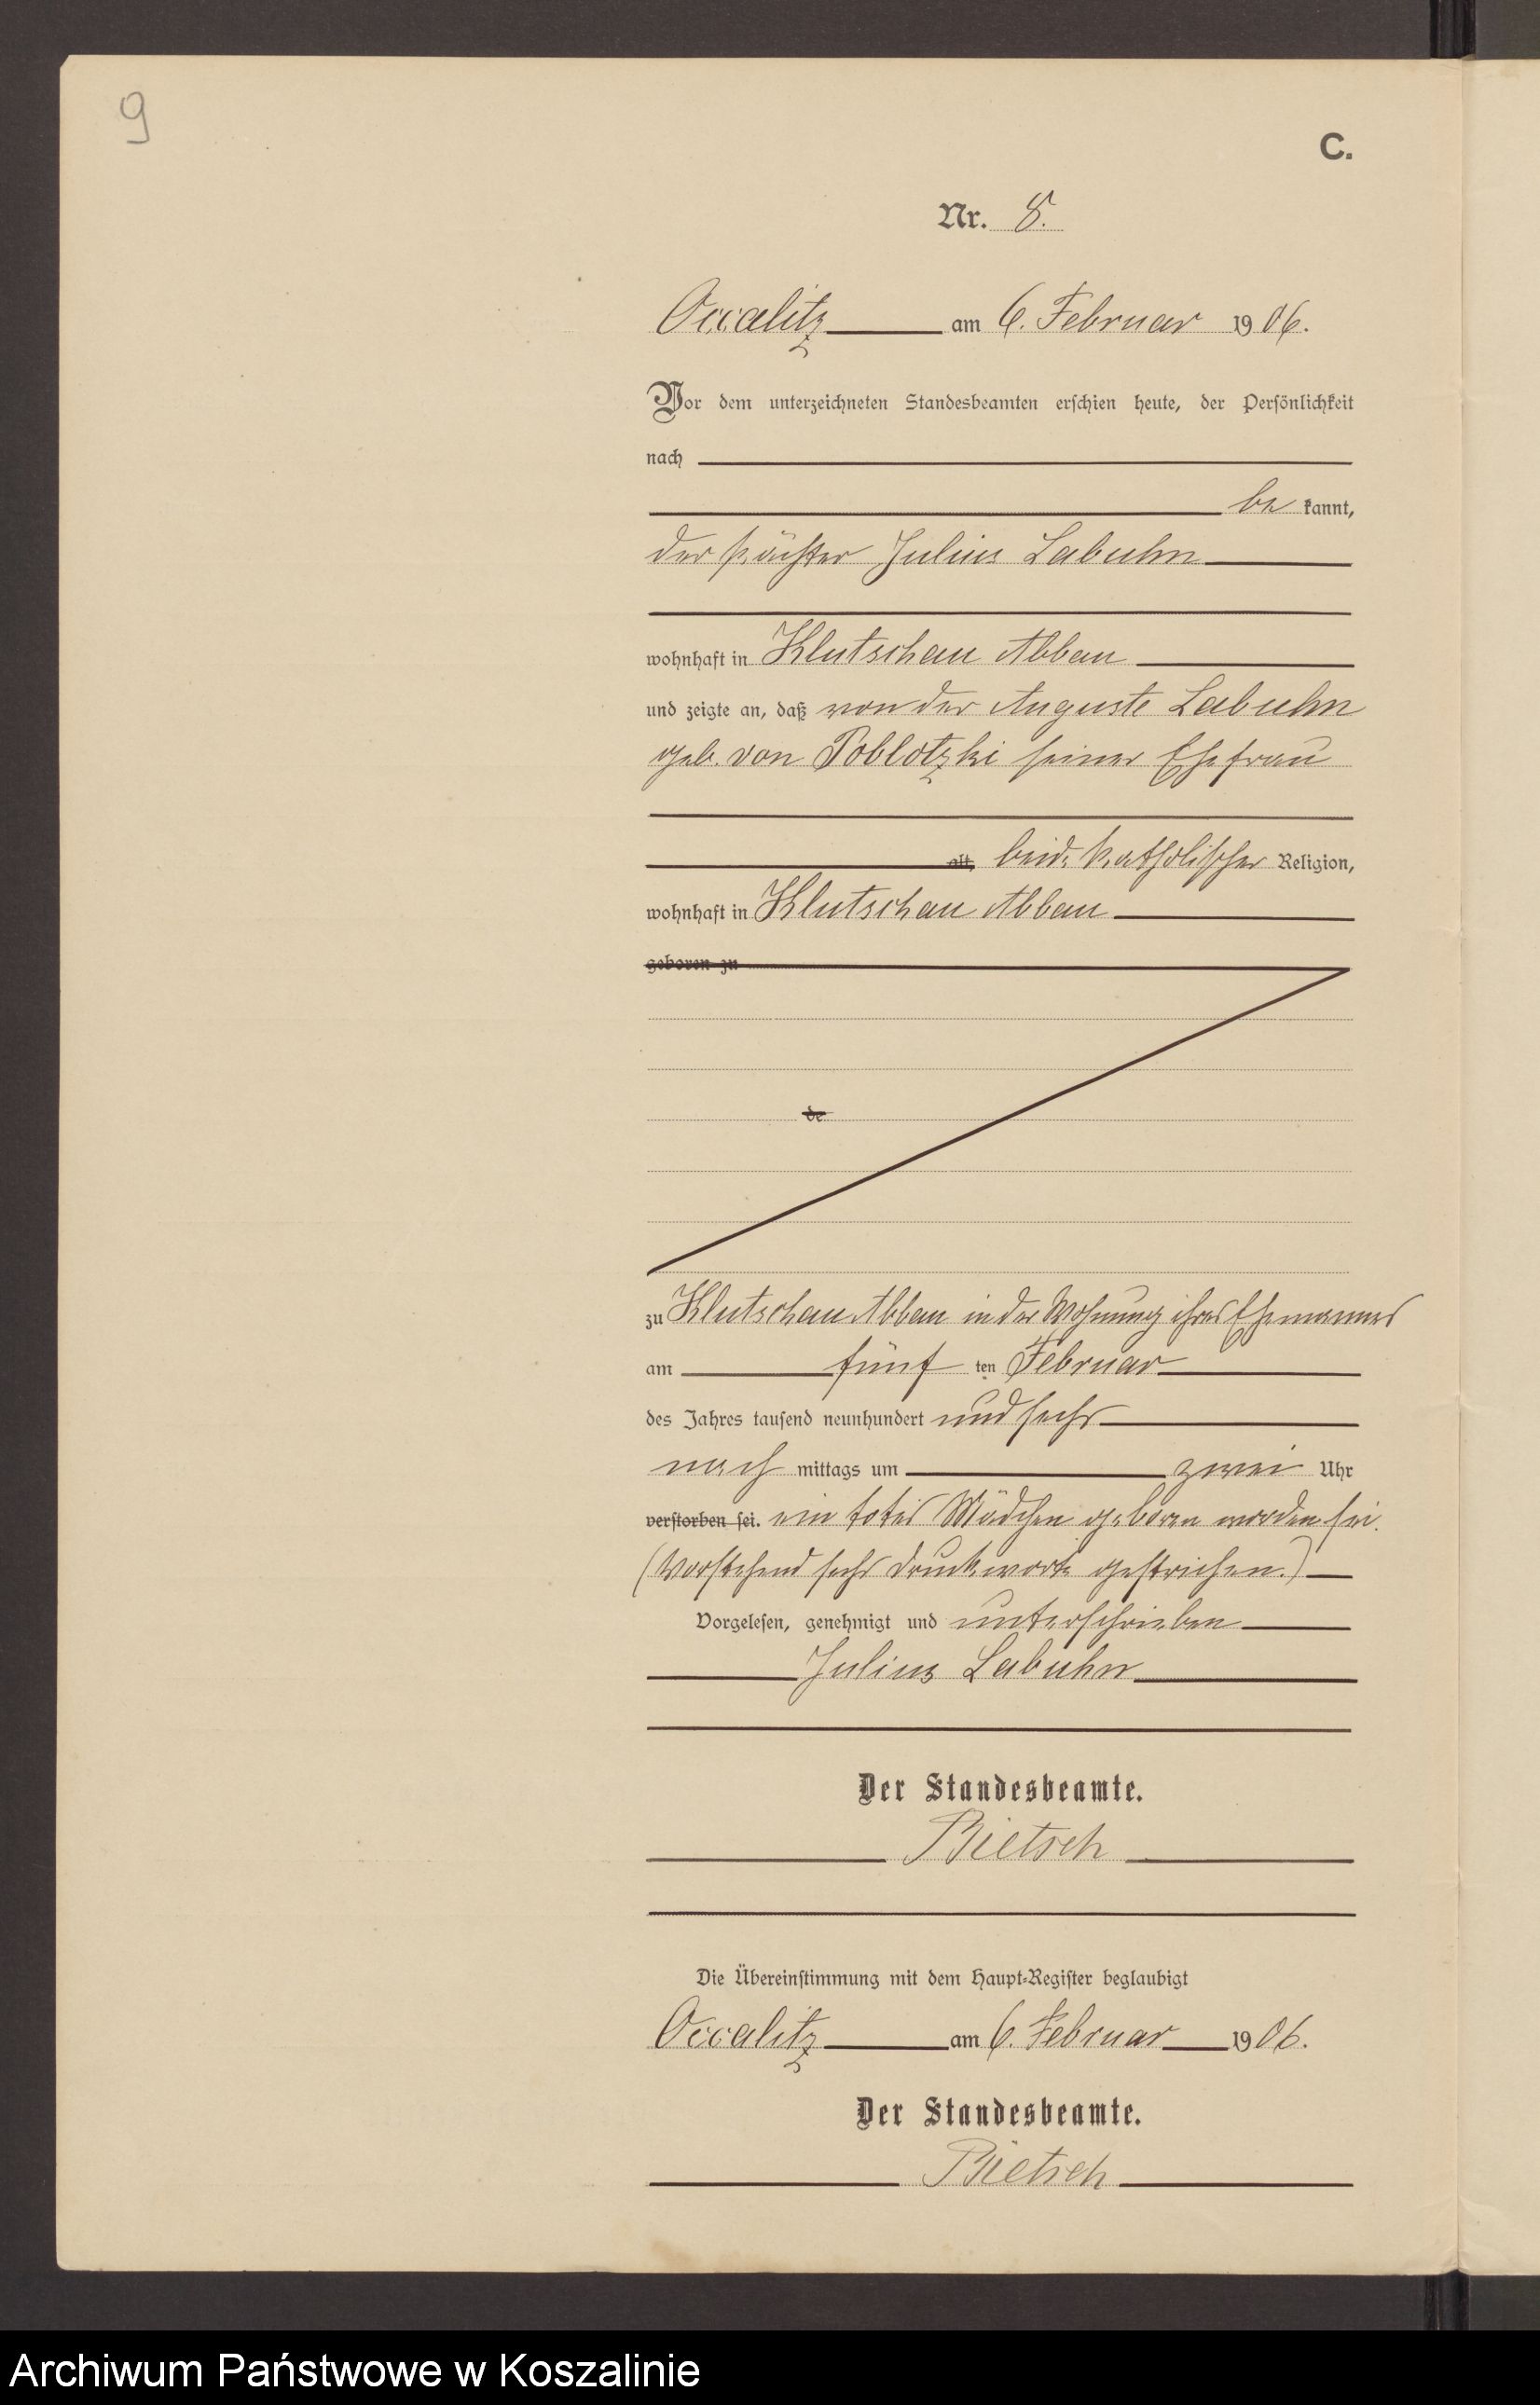 9
C.
Nr. 8.
Occalitz am 6. Februar 1906.
Vor dem unterzeichneten Standesbeamten erschien heute, der Persönlichkeit
nach
be kannt,
der Pächter Julius Labuhn
wohnhaft in Klutschau Abbau
und zeigte an, daß von der Auguste Labuhn
geb. von Poblotzki seiner Ehefrau
alt, beide katholischer Religion,
wohnhaft in Klutschau Abbau
geboren zu
de
zu Klutschau Abbau in der Wohnung ihres Ehemannes
am fünf ten Februar
des Jahres tausend neunhundert und sechs
nach mittags um zwei Uhr
verstorben sei. ein totes Mädchen geboren worden sei.
(Vorstehend sechs Druckworte gestrichen.)
Vorgelesen, genehmigt und unterschrieben
Julius Labuhn
Der Standesbeamte.
Bietsch
Die Übereinstimmung mit dem Haupt-Register beglaubigt
Occalitz am 6. Februar 1906.
Der Standesbeamte.
Bietsch
Archiwum Państwowe w Koszalinie